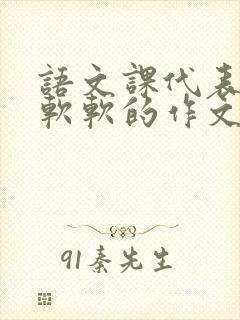 語文課代表
軟軟的作文
91秦先生